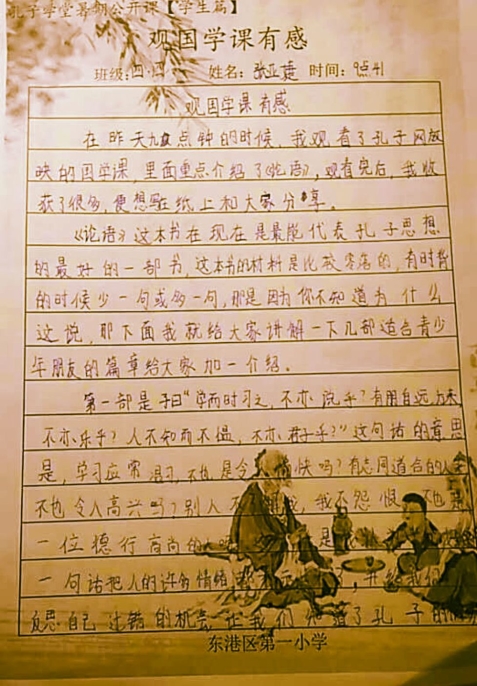 孔子学堂暑期公开课【学生篇】
观国学课有感
班级:四.四 姓名: 张亚萱 时间: 9点41
观国学课有感
在昨天九点钟的时候,我观看了孔子网放
映的国学课,里面重点介绍了《论语》,观看完后,我收
获了很多,便想写在纸上和大家分享。
《论语》这本书在现在是最能代表孔子思想
的最好的一部书,这本书的材料是比较零落的,有时背
的时候少一句或多一句,那是因为你不知道为什么
这说,那下面我就给大家讲解一下几部适合青少
年朋友的篇章给大家加一介绍。
第一部是子曰“学而时习之,不亦说乎?有朋自远方来,
不亦乐乎?人不知而不愠,不亦君子乎?”这句话的意思
是,学习应常温习,不也是令人愉快吗?有志同道合的人
不也令人高兴吗?别人不解我,我不怨恨,不也是
一位德行高尚的 是
一句话把人的许多情绪 ,并给我们
反思自己过错的机会,让我们知道了孔子的
东港区第一小学